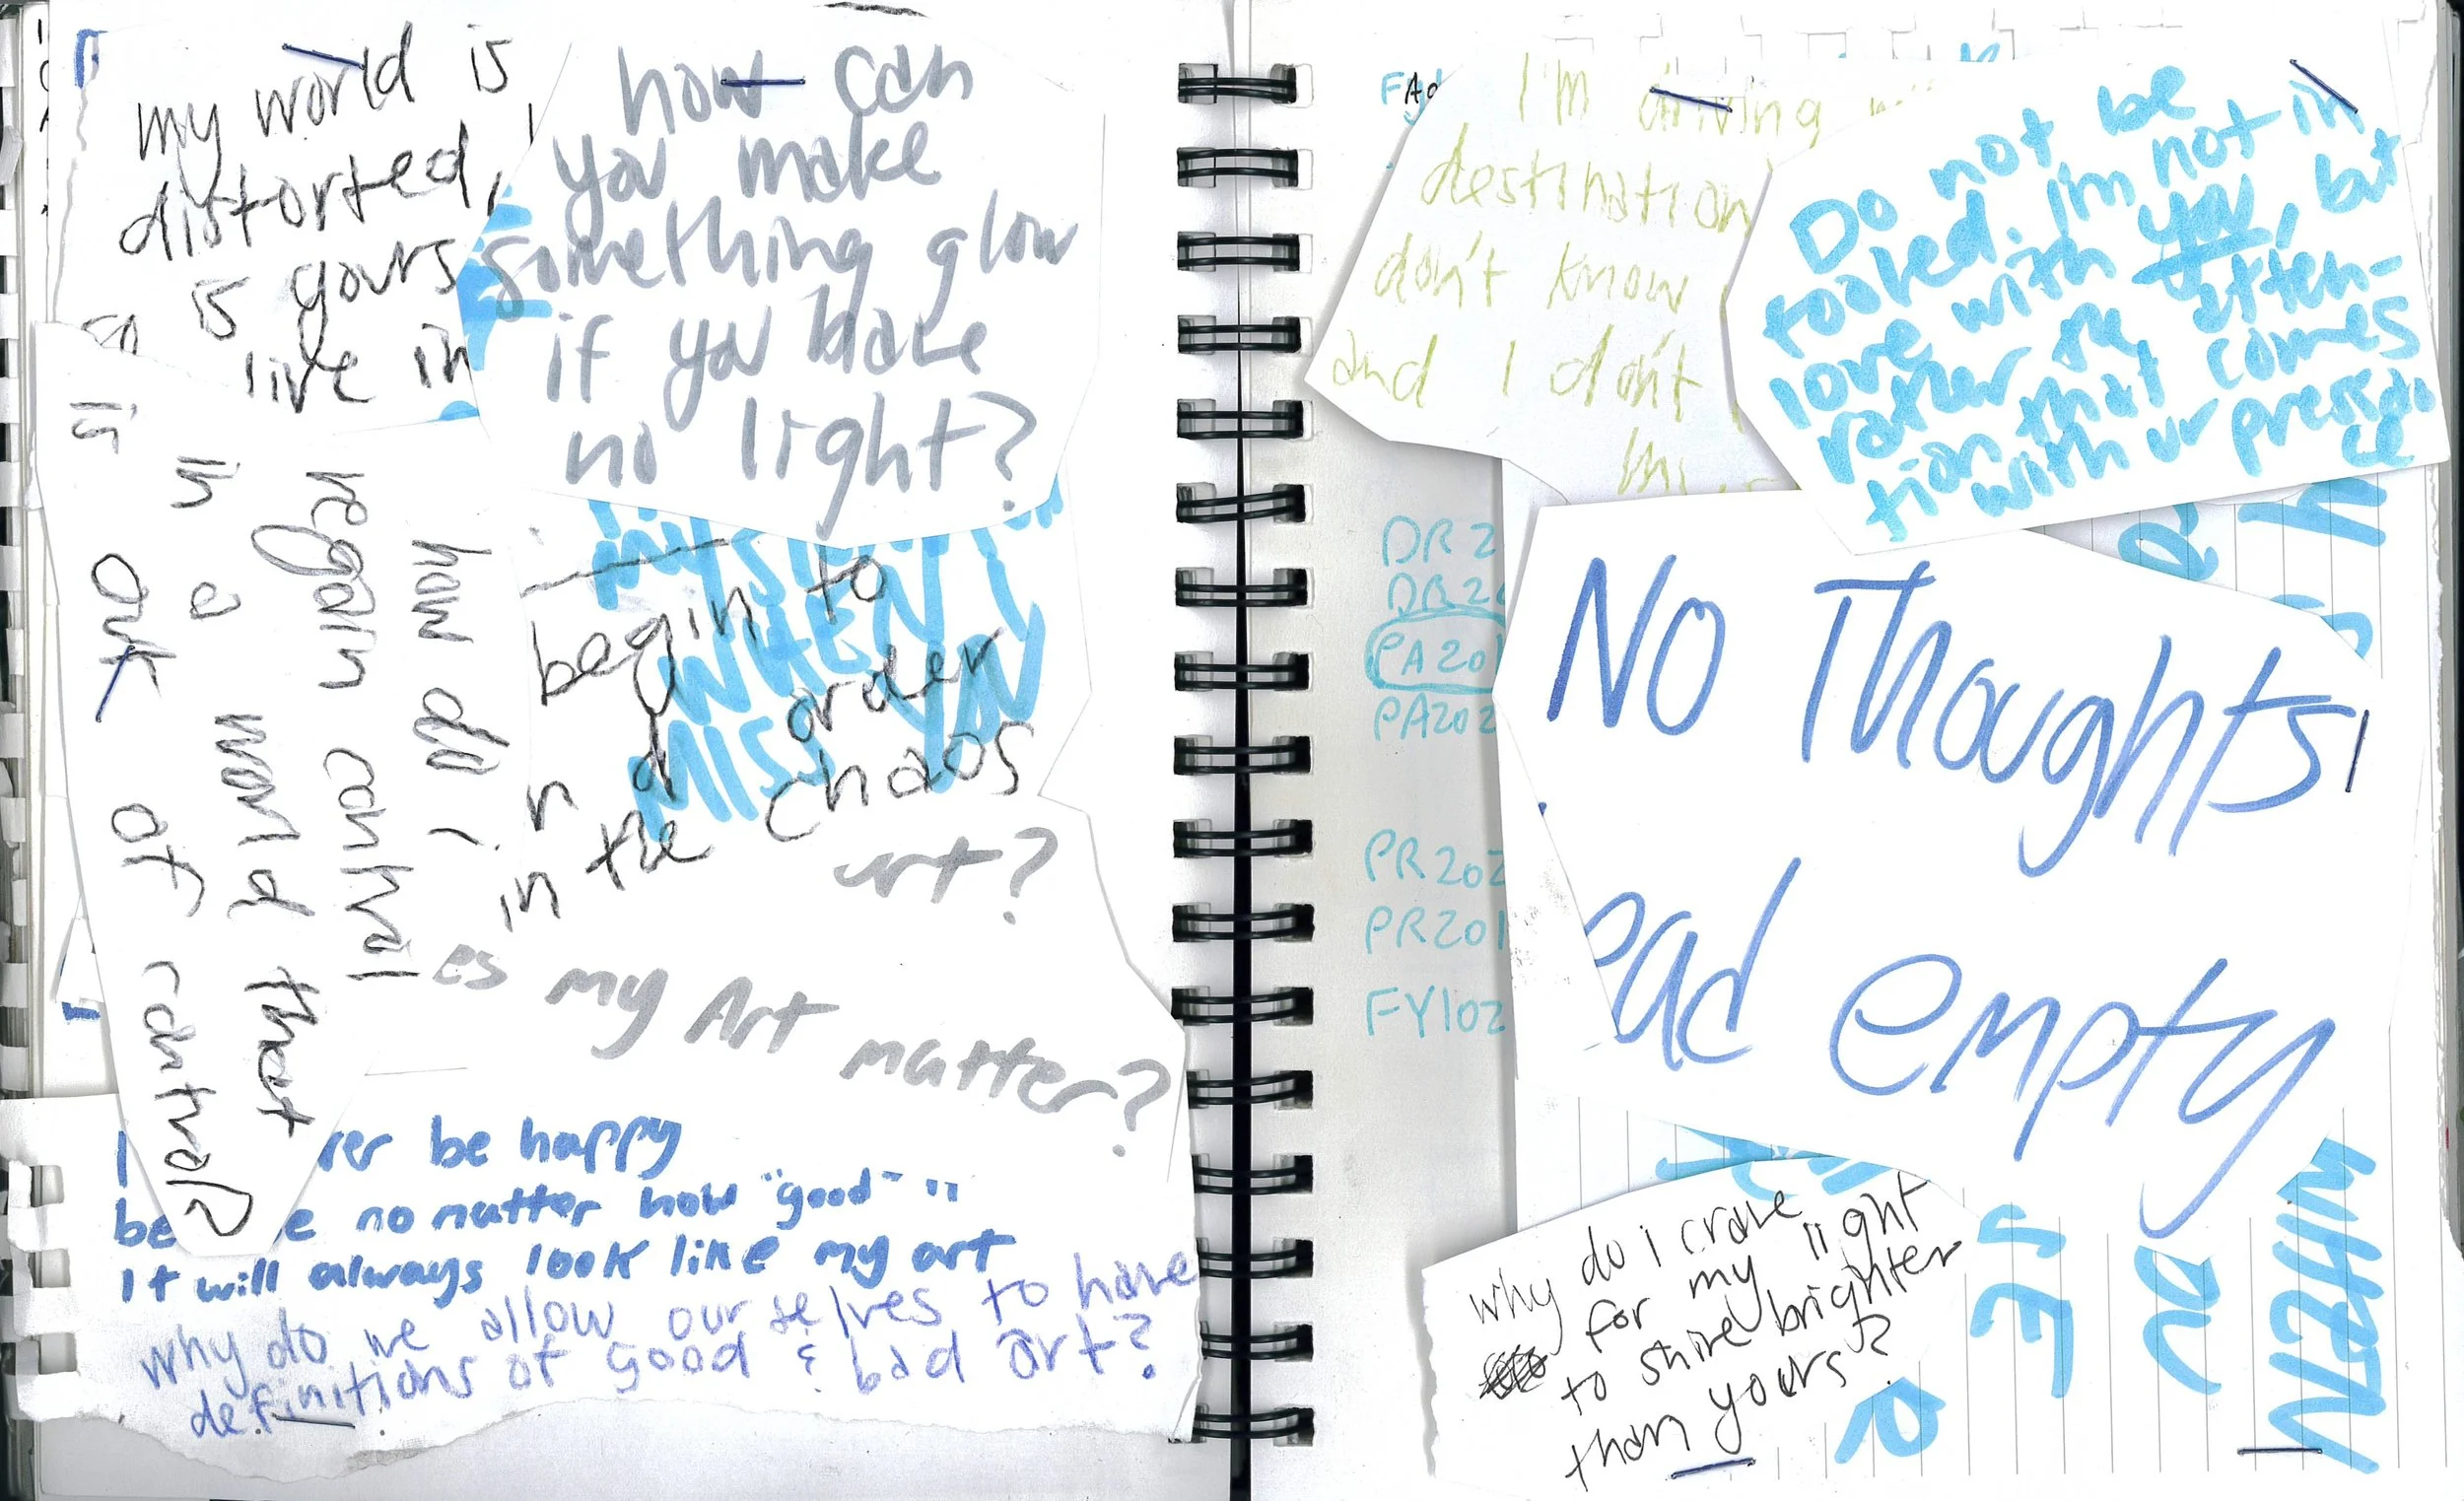 my world is
distorted,
is yours
live in
how can
you make
something glow
if you have
no light?
how do i
regain control
in a world that
is out of control?
begin to
order
in the chaos
WHEN I
MISS YOU
art?
es my Art matter?
I rer be happy
be e no matter how "good"
it will always look like my art
why do we allow ourselves to have
definitions of good & bad art?
I'm driving
destination
don't know
and I don't
Do not be
fooled. I'm not in
love with you, but
rather the atten-
tion that comes
with ur presen
ce
DR2
DR20
PA201
PA202
PR202
PR201
FY102
NO Thoughts,
ead empty
why do i crave
for my light
to shine brighter
than yours?